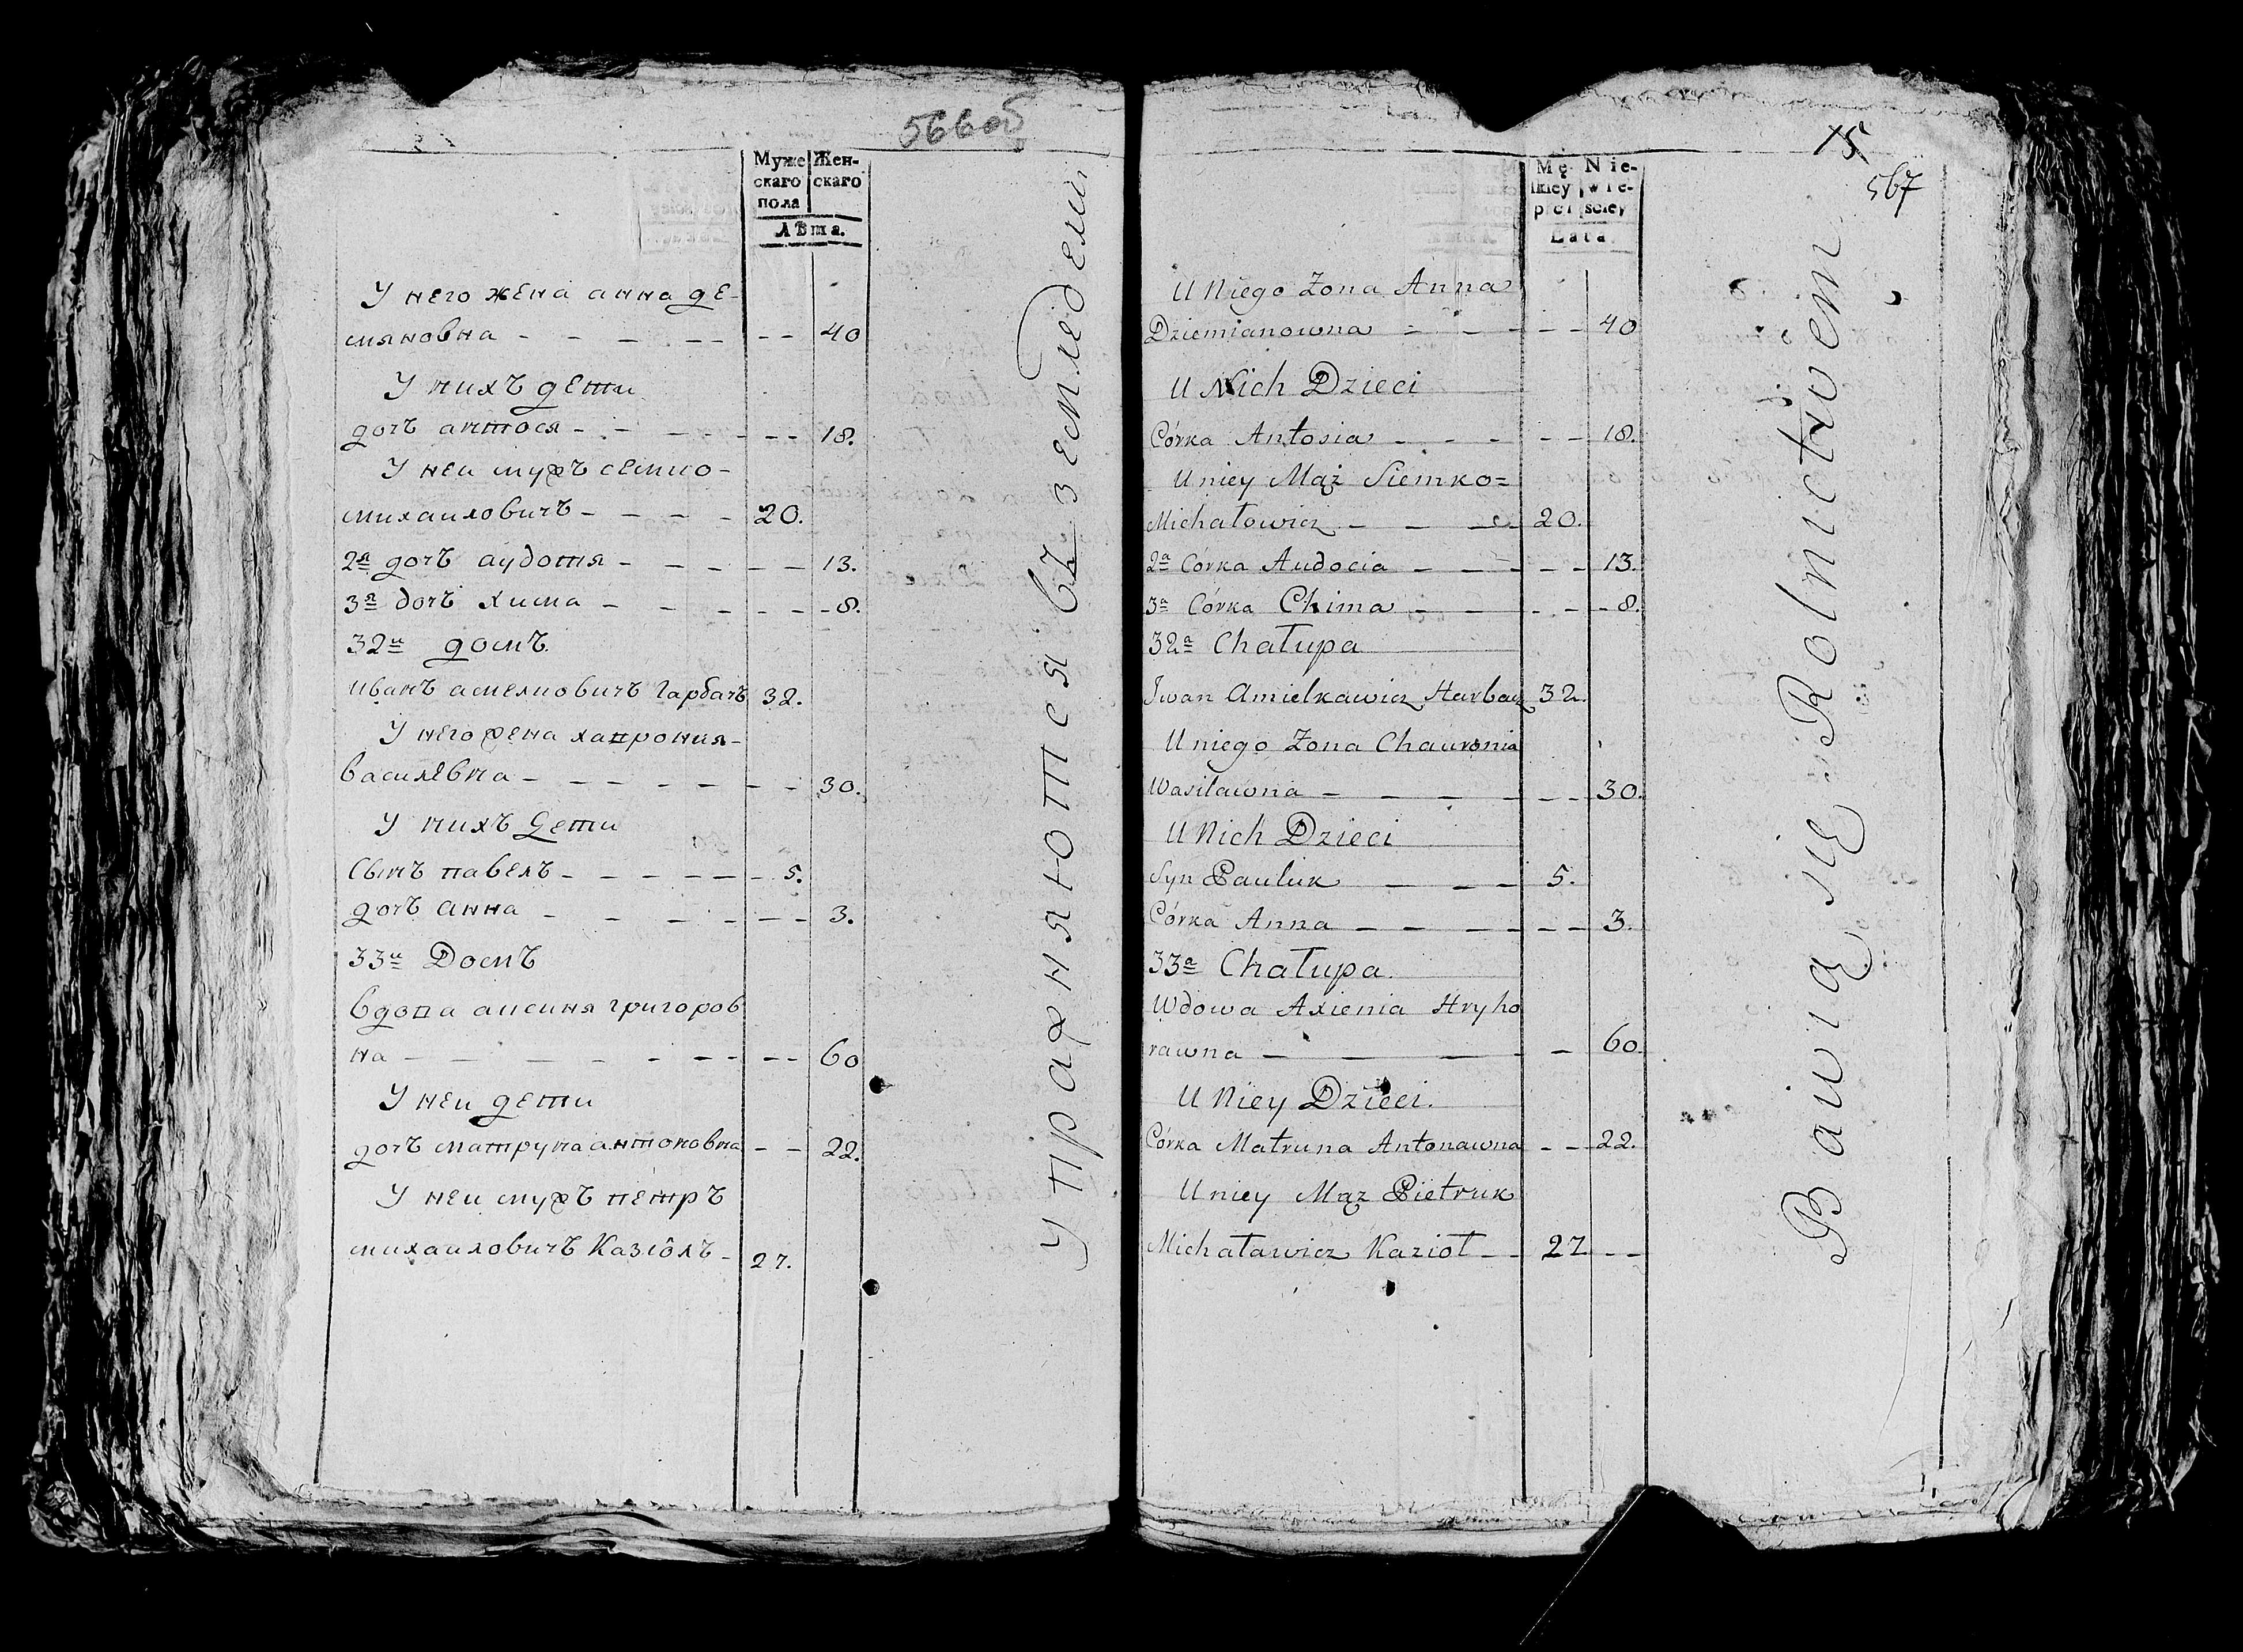 566об
Муже Жен-
скаго скаго
пола
Лѣта.
У него жена анна де-
мяновна - - - - - - - 40
У нихъ дети
дочъ антося - - - - - - - 18.
У неи мужъ семко-
михаиловичъ - - - - 20.
2я дочъ аудотя - - - - - - 13.
3я дочъ хима - - - - - - 8.
32и домъ.
иванъ амелковичъ Гарбачъ 32.
У него жена хапрония-
василевна - - - - - - - 30.
У нихъ дети
Сынъ павелъ - - - - - - 5.
дочъ анна - - - - - - - 3.
33и Домъ
вдова аксиня григоров
на - - - - - - - - - 60
У неи дети
дочъ матруна антоновна - - 22.
У неи мужъ петръ
михаиловичъ Казіôлъ - 27.
упражняются въ земледелии
15
567
Mę- Nie-
skiey wie-
płci sciey
Lata
U Niego Zona Anna
Dziemianowna - - - - - 40
U Nich Dzieci
Córka Antosia - - - - - 18.
U niey Mąż Siemko=
Michałowicz - - - 20.
2a Córka Audocia - - - - - 13.
3a Córka Chima - - - - - 8.
32a Chałupa
Iwan Amielkawicz Harbacz 32.
U niego Zona Chauronia
Wasilawna - - - - - - 30.
U Nich Dzieci
Syn Pauluk - - - 5.
Córka Anna - - - - - - 3.
33a Chałupa.
Wdowa Axienia Hryho
rawna - - - - 60.
U Niey Dzieci.
Córka Matruna Antonawna - - 22.
U niey Mąz Pietruk
Michaławicz Kazioł - - 27 - -
Bawią się Rolnictwem